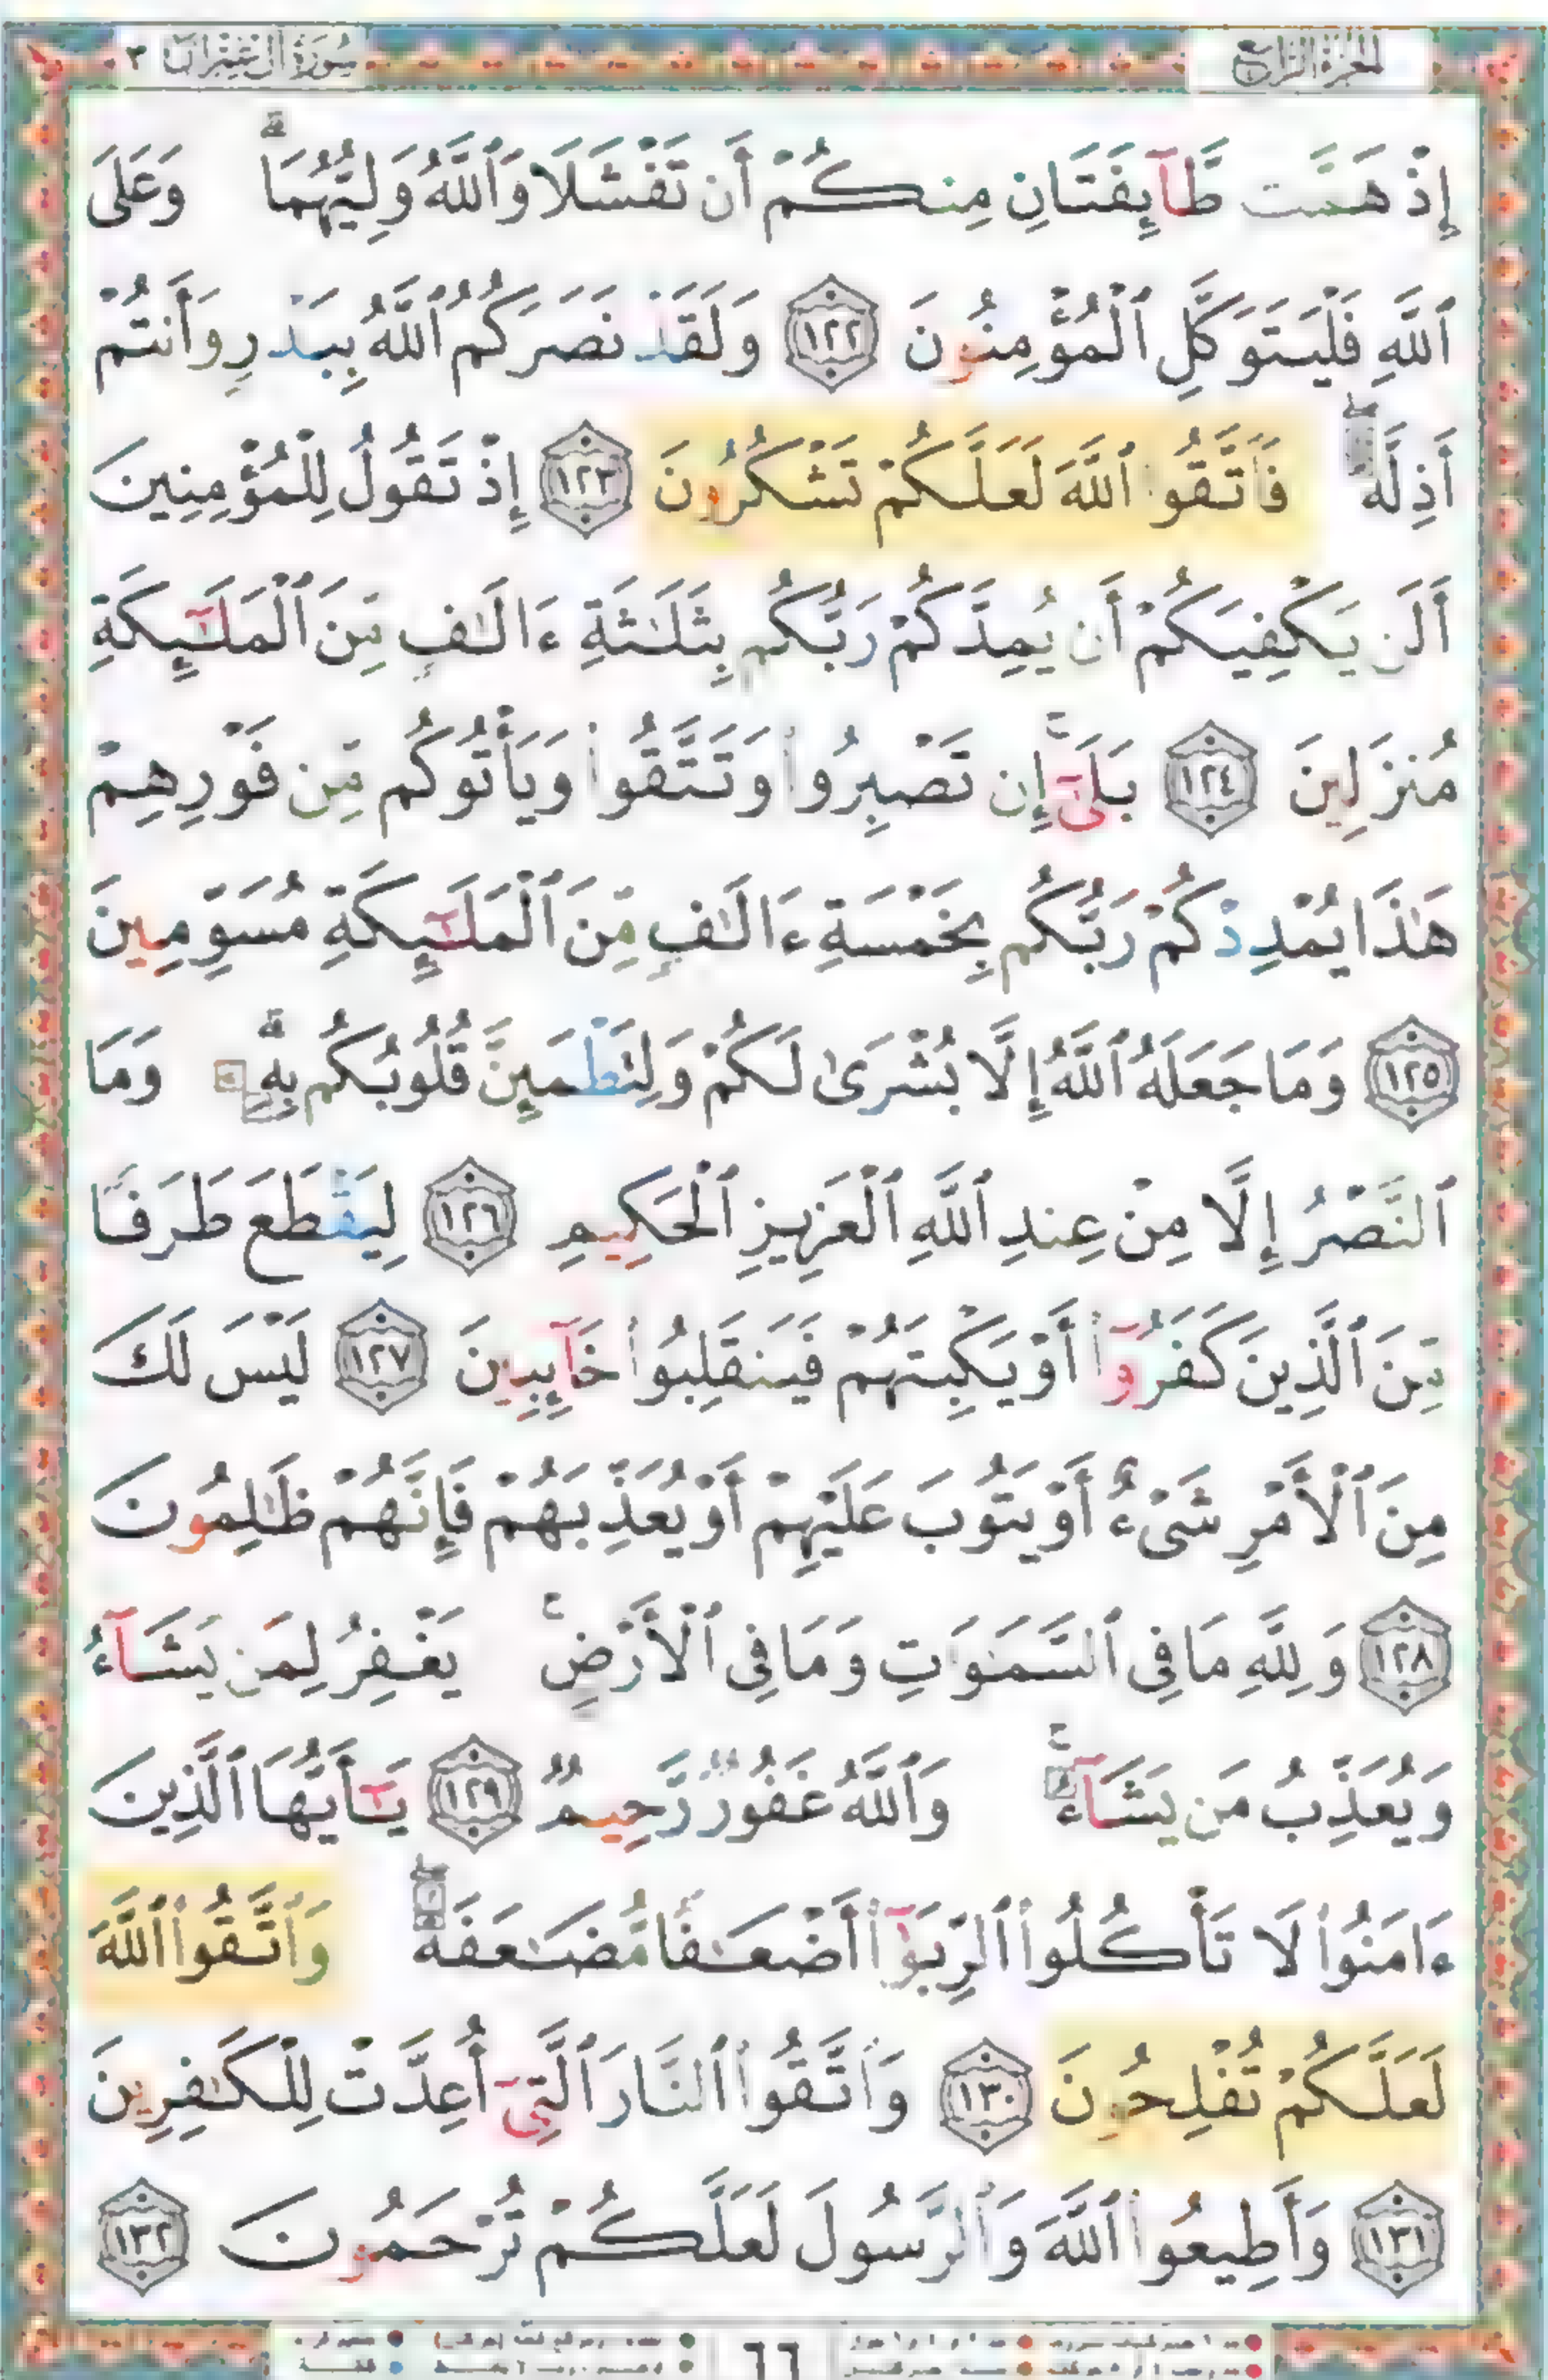 سُورَةُ آلِ عِمْرَان ٣ الجُزْءُ الرَّابِعُ
إِذْ هَمَّت طَّآئِفَتَانِ مِنكُمْ أَن تَفْشَلَا وَٱللَّهُ وَلِيُّهُمَا ۗ وَعَلَى
ٱللَّهِ فَلْيَتَوَكَّلِ ٱلْمُؤْمِنُونَ ١٢٢ وَلَقَدْ نَصَرَكُمُ ٱللَّهُ بِبَدْرٍ وَأَنتُمْ
أَذِلَّةٌ ۖ فَٱتَّقُوا۟ ٱللَّهَ لَعَلَّكُمْ تَشْكُرُونَ ١٢٣ إِذْ تَقُولُ لِلْمُؤْمِنِينَ
أَلَن يَكْفِيَكُمْ أَن يُمِدَّكُمْ رَبُّكُم بِثَلَـٰثَةِ ءَالَـٰفٍ مِّنَ ٱلْمَلَـٰٓئِكَةِ
مُنزَلِينَ ١٢٤ بَلَىٰٓ ۚ إِن تَصْبِرُوا۟ وَتَتَّقُوا۟ وَيَأْتُوكُم مِّن فَوْرِهِمْ
هَـٰذَا يُمْدِدْكُمْ رَبُّكُم بِخَمْسَةِ ءَالَـٰفٍ مِّنَ ٱلْمَلَـٰٓئِكَةِ مُسَوِّمِينَ
١٢٥ وَمَا جَعَلَهُ ٱللَّهُ إِلَّا بُشْرَىٰ لَكُمْ وَلِتَطْمَئِنَّ قُلُوبُكُم بِهِۦ ۗ وَمَا
ٱلنَّصْرُ إِلَّا مِنْ عِندِ ٱللَّهِ ٱلْعَزِيزِ ٱلْحَكِيمِ ١٢٦ لِيَقْطَعَ طَرَفًا
مِّنَ ٱلَّذِينَ كَفَرُوٓا۟ أَوْ يَكْبِتَهُمْ فَيَنقَلِبُوا۟ خَآئِبِينَ ١٢٧ لَيْسَ لَكَ
مِنَ ٱلْأَمْرِ شَىْءٌ أَوْ يَتُوبَ عَلَيْهِمْ أَوْ يُعَذِّبَهُمْ فَإِنَّهُمْ ظَـٰلِمُونَ
١٢٨ وَلِلَّهِ مَا فِى ٱلسَّمَـٰوَٰتِ وَمَا فِى ٱلْأَرْضِ ۚ يَغْفِرُ لِمَن يَشَآءُ
وَيُعَذِّبُ مَن يَشَآءُ ۚ وَٱللَّهُ غَفُورٌ رَّحِيمٌ ١٢٩ يَـٰٓأَيُّهَا ٱلَّذِينَ
ءَامَنُوا۟ لَا تَأْكُلُوا۟ ٱلرِّبَوٰٓا۟ أَضْعَـٰفًا مُّضَـٰعَفَةً ۖ وَٱتَّقُوا۟ ٱللَّهَ
لَعَلَّكُمْ تُفْلِحُونَ ١٣٠ وَٱتَّقُوا۟ ٱلنَّارَ ٱلَّتِىٓ أُعِدَّتْ لِلْكَـٰفِرِينَ
١٣١ وَأَطِيعُوا۟ ٱللَّهَ وَٱلرَّسُولَ لَعَلَّكُمْ تُرْحَمُونَ ١٣٢
٦٦